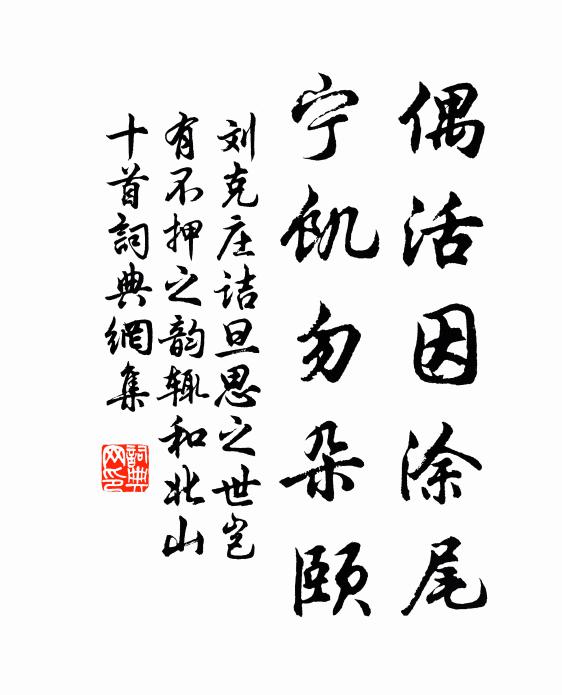 偶活因涂尾
宁饥勿朵颐
刘克庄诘旦思之世岂
有不押之韵辄和北山
十首詞典網集
詞典网印